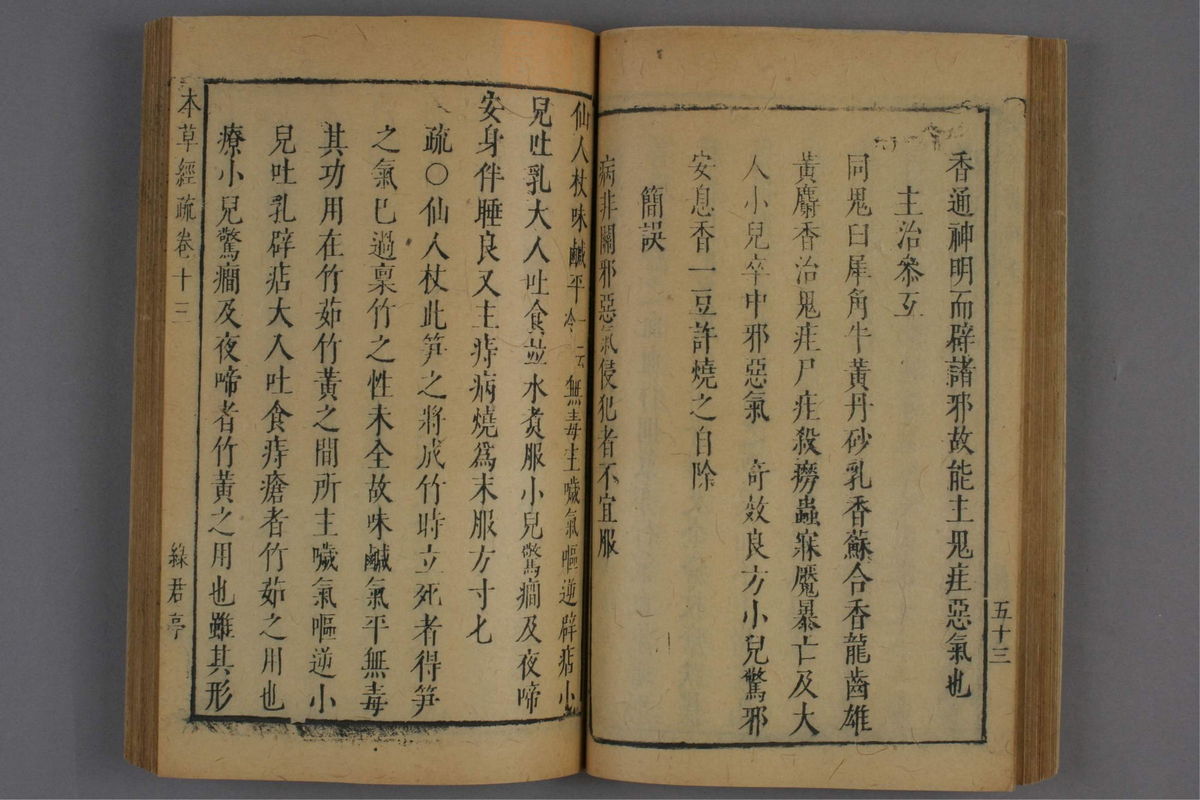 香通神明而辟諸邪故能主鬼疰惡氣也
主治叅互
同鬼臼犀角牛黃丹砂乳香蘇合香龍齒雄
黃麝香治鬼疰尸疰殺癆蟲寐魘暴亡及大
人小兒卒中邪惡氣　奇效良方小兒驚邪
安息香一豆許燒之自除
簡誤
病非關邪惡氣侵犯者不宜服
五十三
仙人杖味鹹平一云冷無毒主噦氣嘔逆辟痁小
兒吐乳大人吐食並水煑服小兒驚癎及夜啼
安身伴睡良又主痔病燒爲末服方寸匕
疏○仙人杖此笋之將成竹時立死者得笋
之氣已過稟竹之性未全故味鹹氣平無毒
其功用在竹茹竹黃之間所主噦氣嘔逆小
兒吐乳辟痁大人吐食痔瘡者竹茹之用也
療小兒驚癎及夜啼者竹黃之用也雖其形
本草經疏卷十三
綠君亭